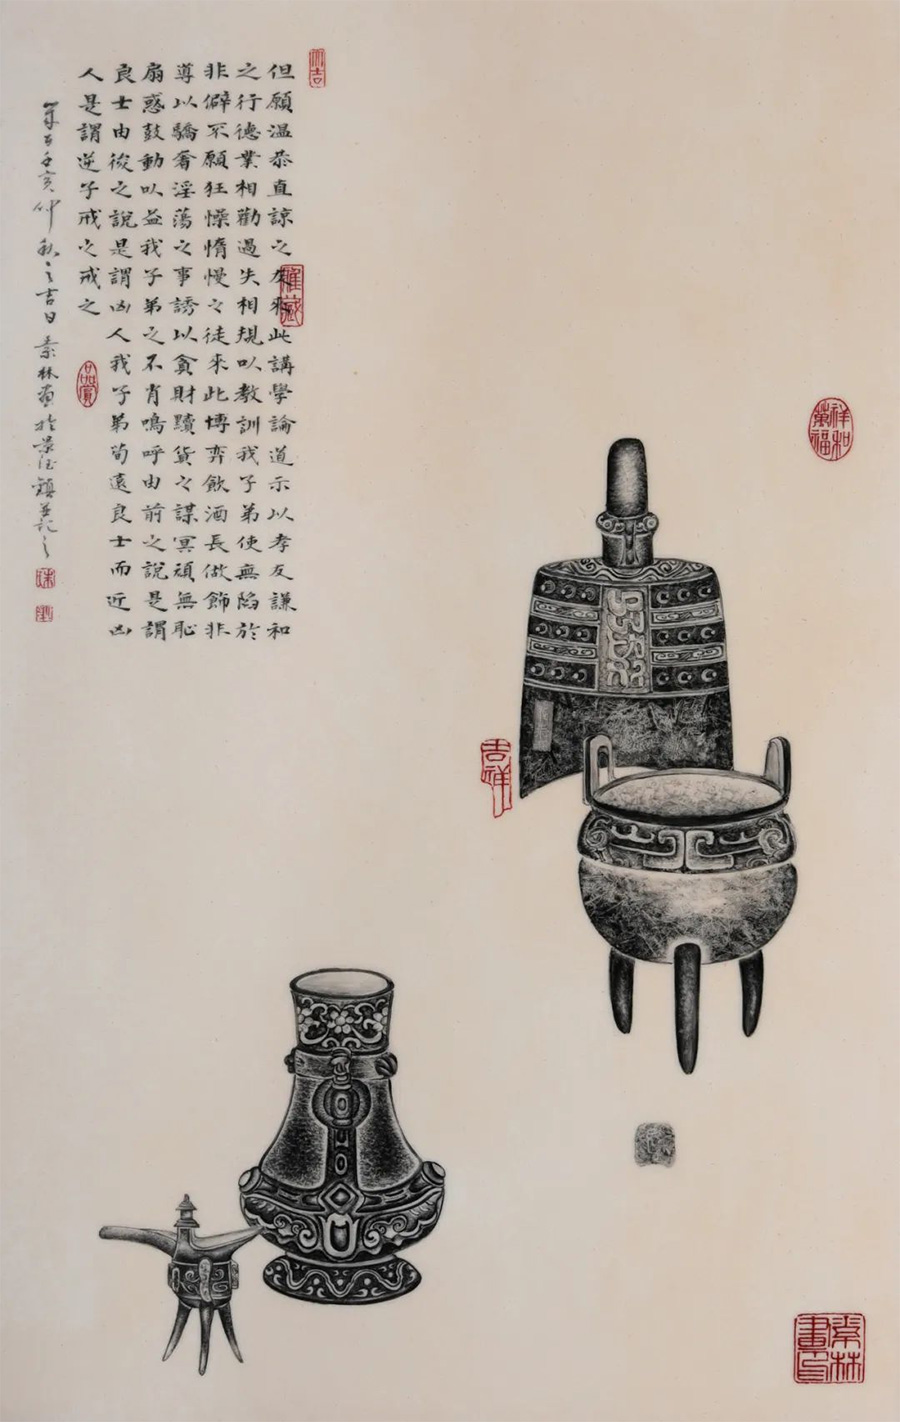 大吉
但願溫恭直諒之友來此講學論道示以孝友謙和
之行德業相勸過失相規以教訓我子弟使無陷於
非僻不願狂懆惰慢之徒來此博弈飲酒長傲飾非
導以驕奢淫蕩之事誘以貪財黷貨之謀冥頑無恥
扇惑鼓動以益我子弟之不肖嗚呼由前之說是謂
良士由後之說是謂凶人我子弟苟遠良士而近凶
人是謂逆子戒之戒之
亥仲秋之吉日素林畫於景德鎮並記之
雅藏
品賞
祥和萬福
吉祥
素林畫印